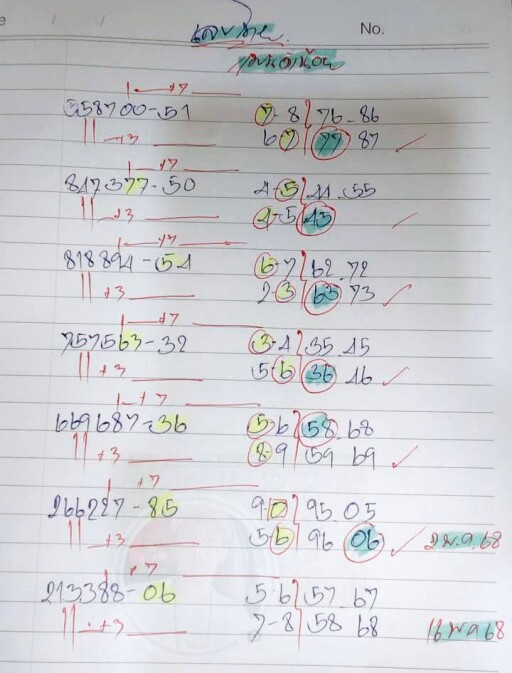 No.
+7
558700-51 7-8 76-86
+3 6 7 77 87
+7
847377-50 4-5 44-55
+3 4-5 45
+7
818894-54 6-7 62-72
+3 2-3 63 73
+7
757563-32 3-4 35 45
+3 5-6 36 46
+7
669687-36 5 6 58-68
+3 8-9 59 69
+7
266227-85 9 0 95-05
+3 5-6 96 06 2 พ.ค. 68
+7
213388-06 5-6 57-67
+3 7-8 58 68 16 พ.ค 68